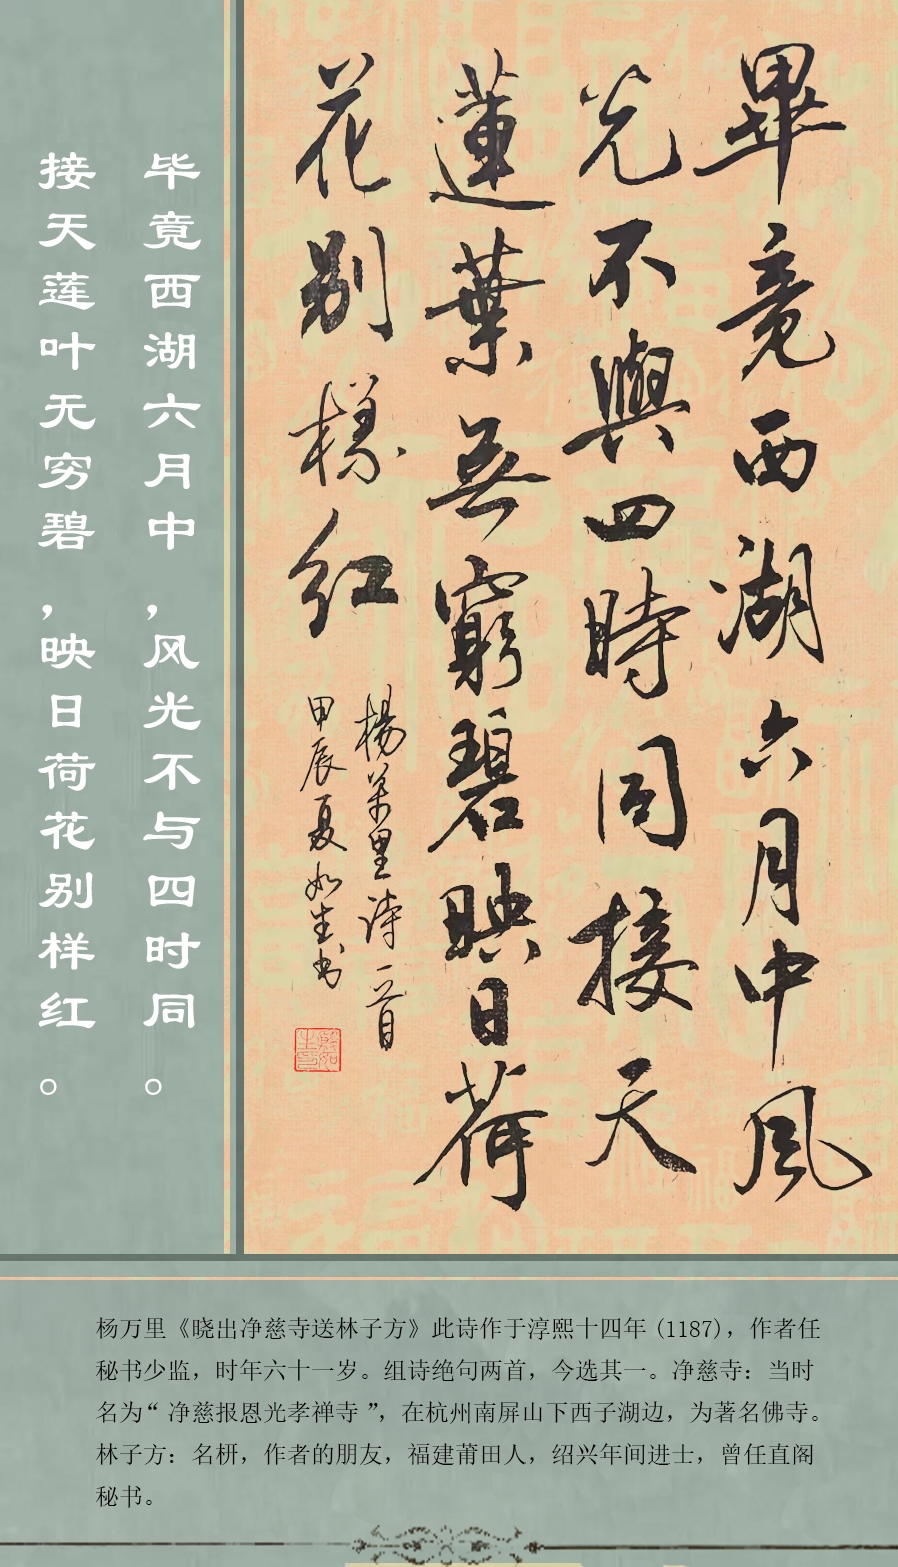 畢竟西湖六月中風
光不與四時同接天
蓮葉無窮碧映日荷
花别様红
楊萬里诗一首
甲辰夏如生书
毕竟西湖六月中，风光不与四时同。
接天莲叶无穷碧，映日荷花别样红。
杨万里《晓出净慈寺送林子方》此诗作于淳熙十四年(1187)，作者任
秘书少监，时年六十一岁。组诗绝句两首，今选其一。净慈寺：当时
名为“净慈报恩光孝禅寺”，在杭州南屏山下西子湖边，为著名佛寺。
林子方：名枅，作者的朋友，福建莆田人，绍兴年间进士，曾任直阁
秘书。